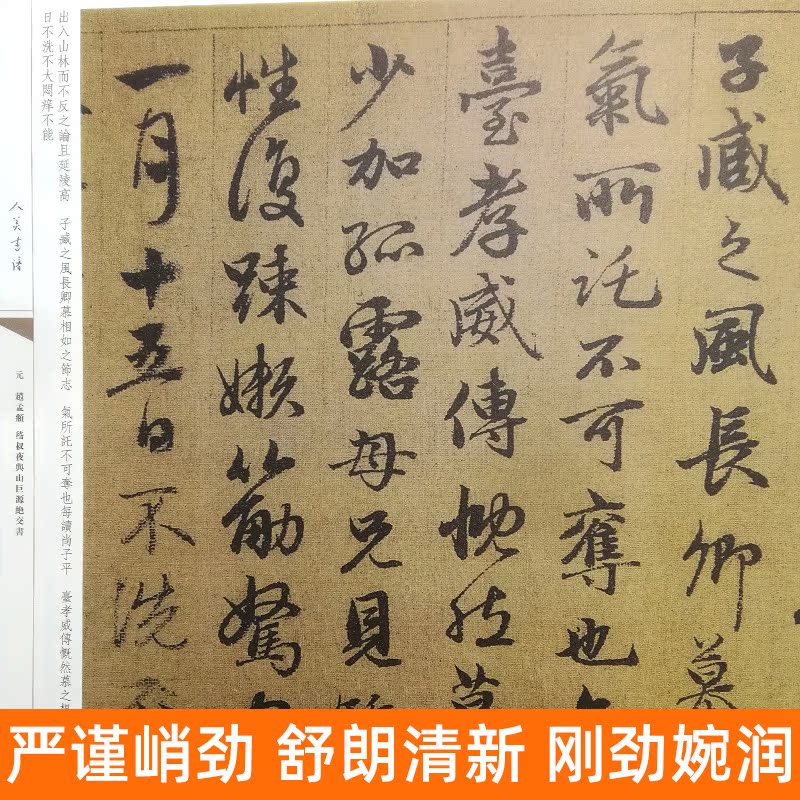 子臧之風長卿慕
氣所託不可奪也
臺孝威傳慨然慕
少加孤露母兄見
性復疎嬾筋駑
一月十五日不洗不
出入山林而不反之論且延陵高 子臧之風長卿慕相如之節志 氣所託不可奪也每讀尚子平 臺孝威傳慨然慕之想
日不洗不大悶癢不能
人美書譜
元 趙孟頫 嵇叔夜與山巨源絕交書
严谨峭劲 舒朗清新 刚劲婉润